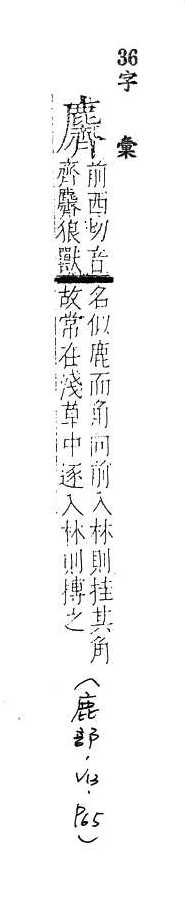 36字彙
䴡
前西切音
齊䴡狼獸
名似鹿而角向前入林則挂其角
故常在淺草中逐入林則搏之
(鹿部.V13.P65)